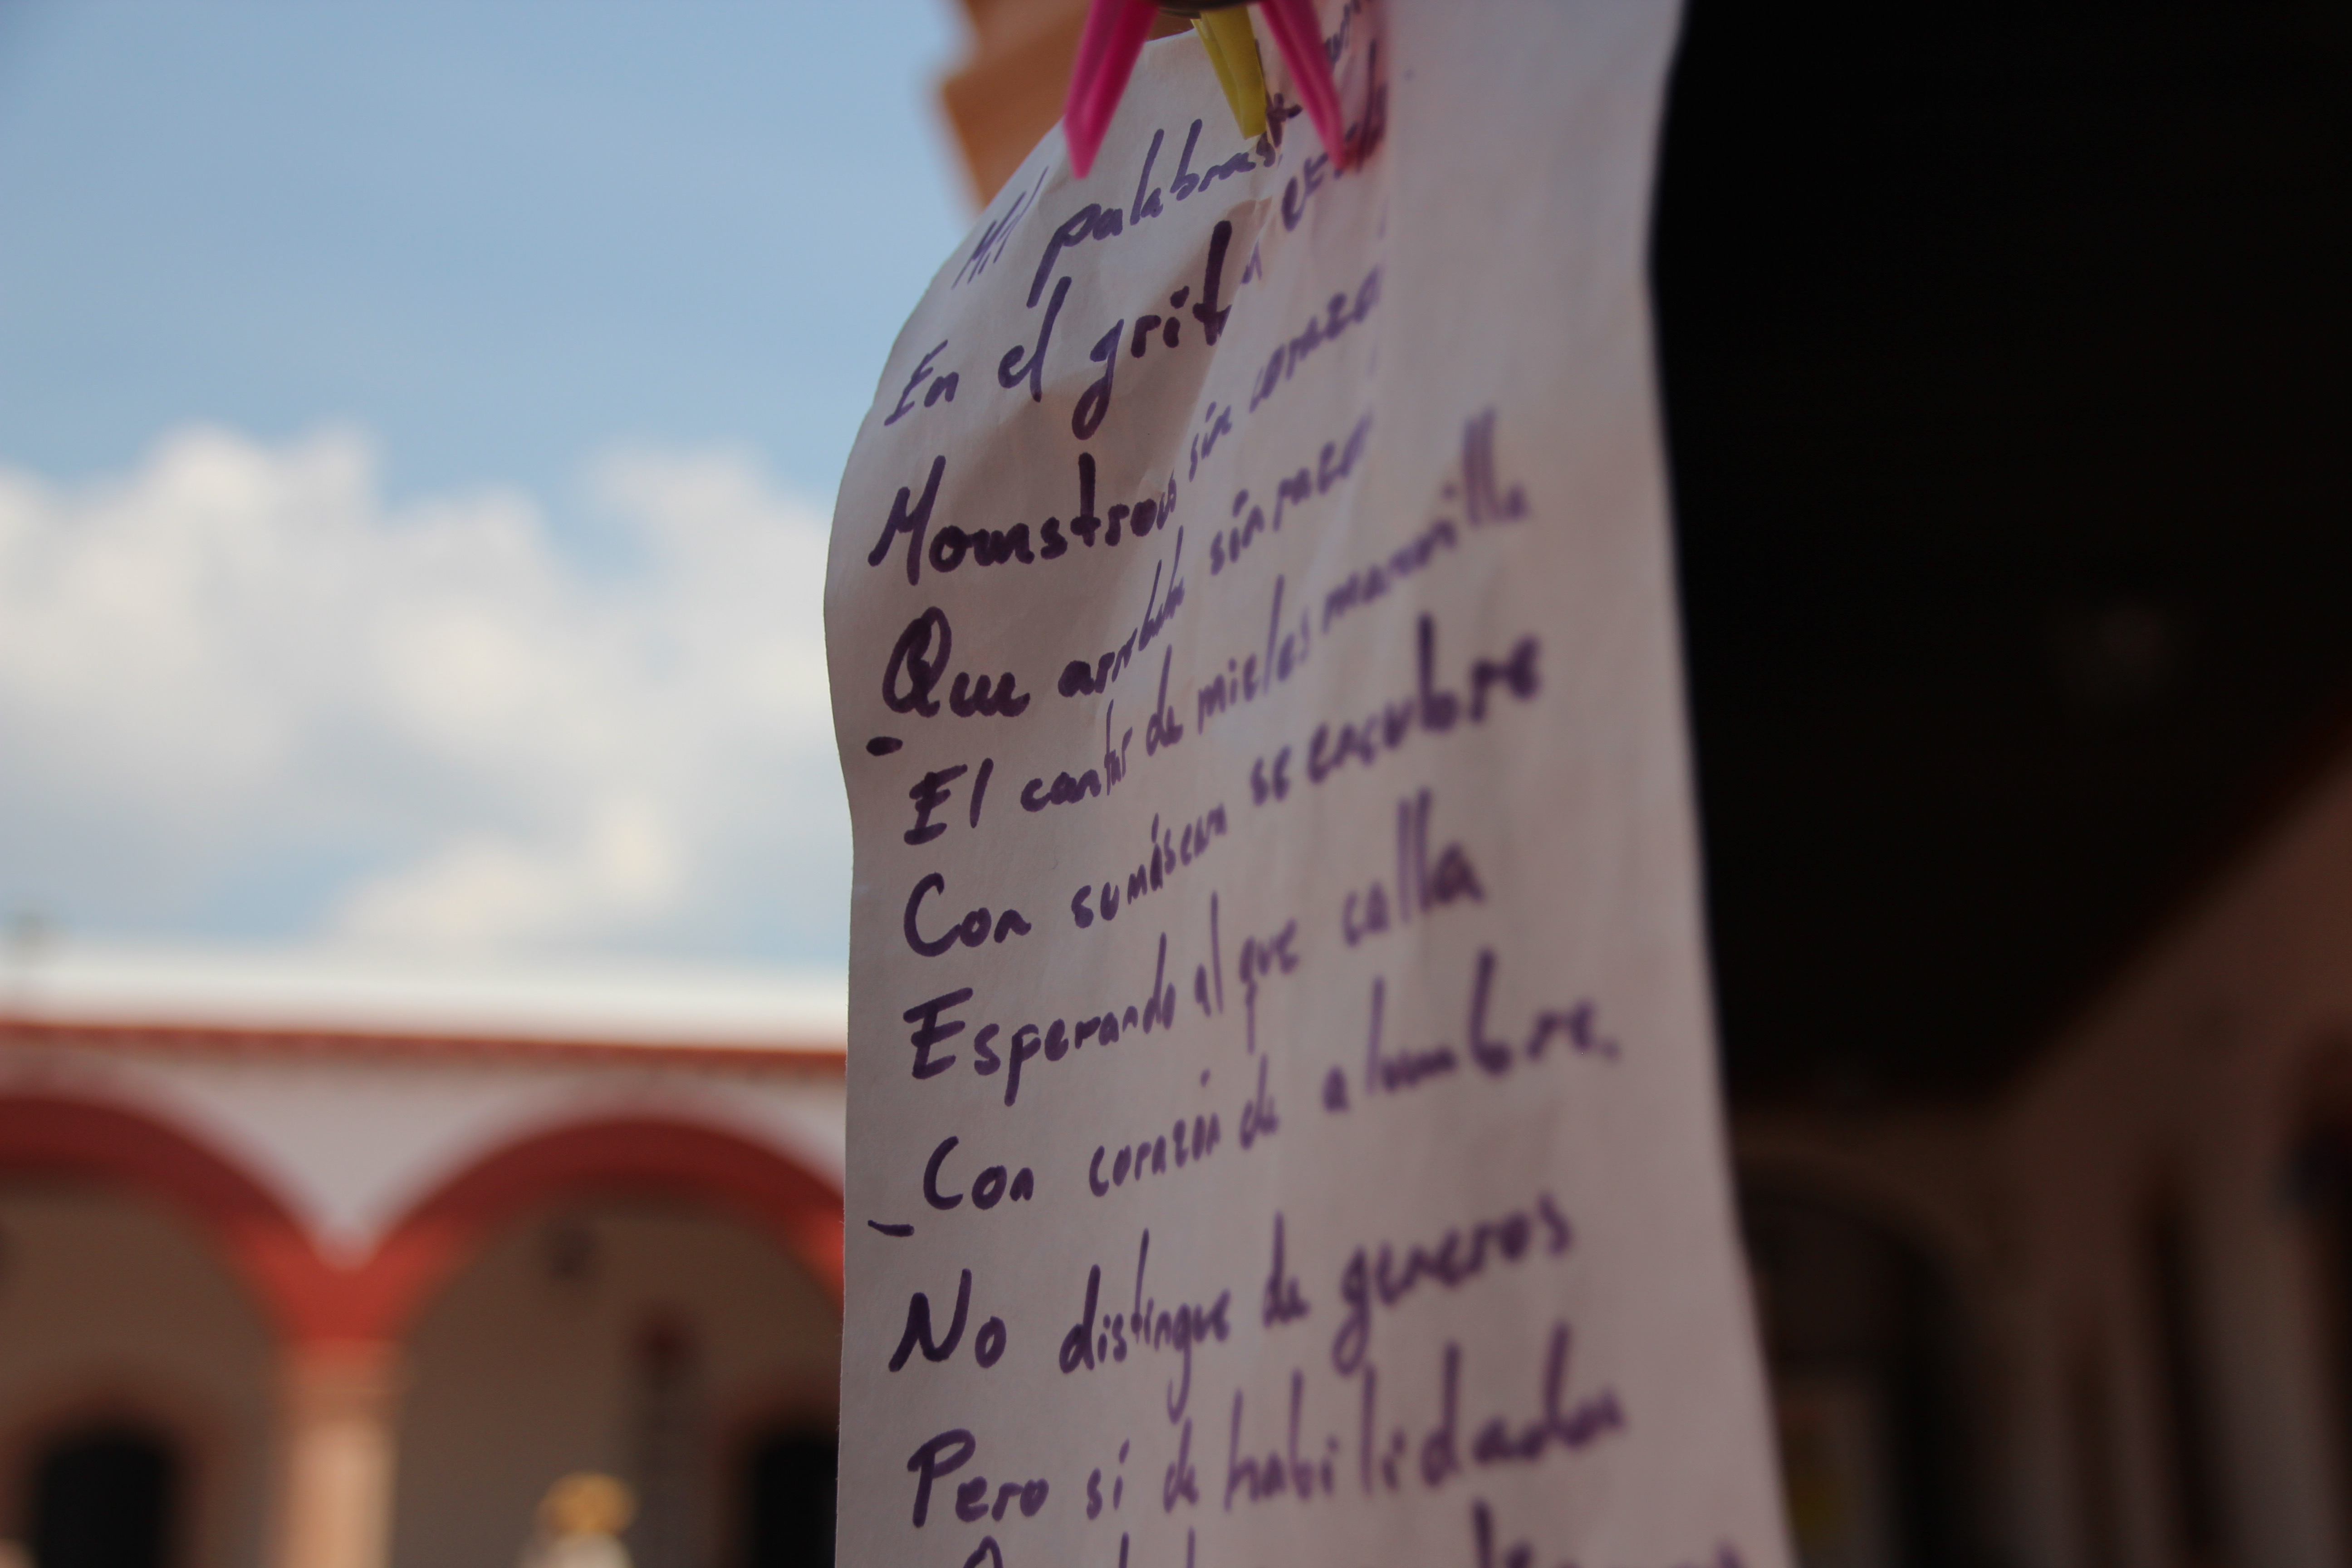 Mil palabras
En el grit
Monstruo sin corazo
Que arrebata sin razo
- El cantar de mieles maravilla
Con su máscara se encubre
Esperando al que calla
Con corazón de alumbre.
- No distingue de generos
Pero si de habilidades